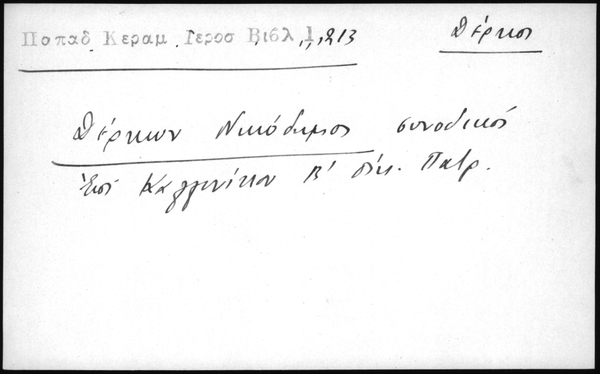 Παπαδ Κεραμ Ιεροσ Βιβλ 1,,213
Δέρκοι
Δέρκων Νικόδημος συνοδικός
ἐπί Καλλινίκου Β' οἰκ. Πατρ.